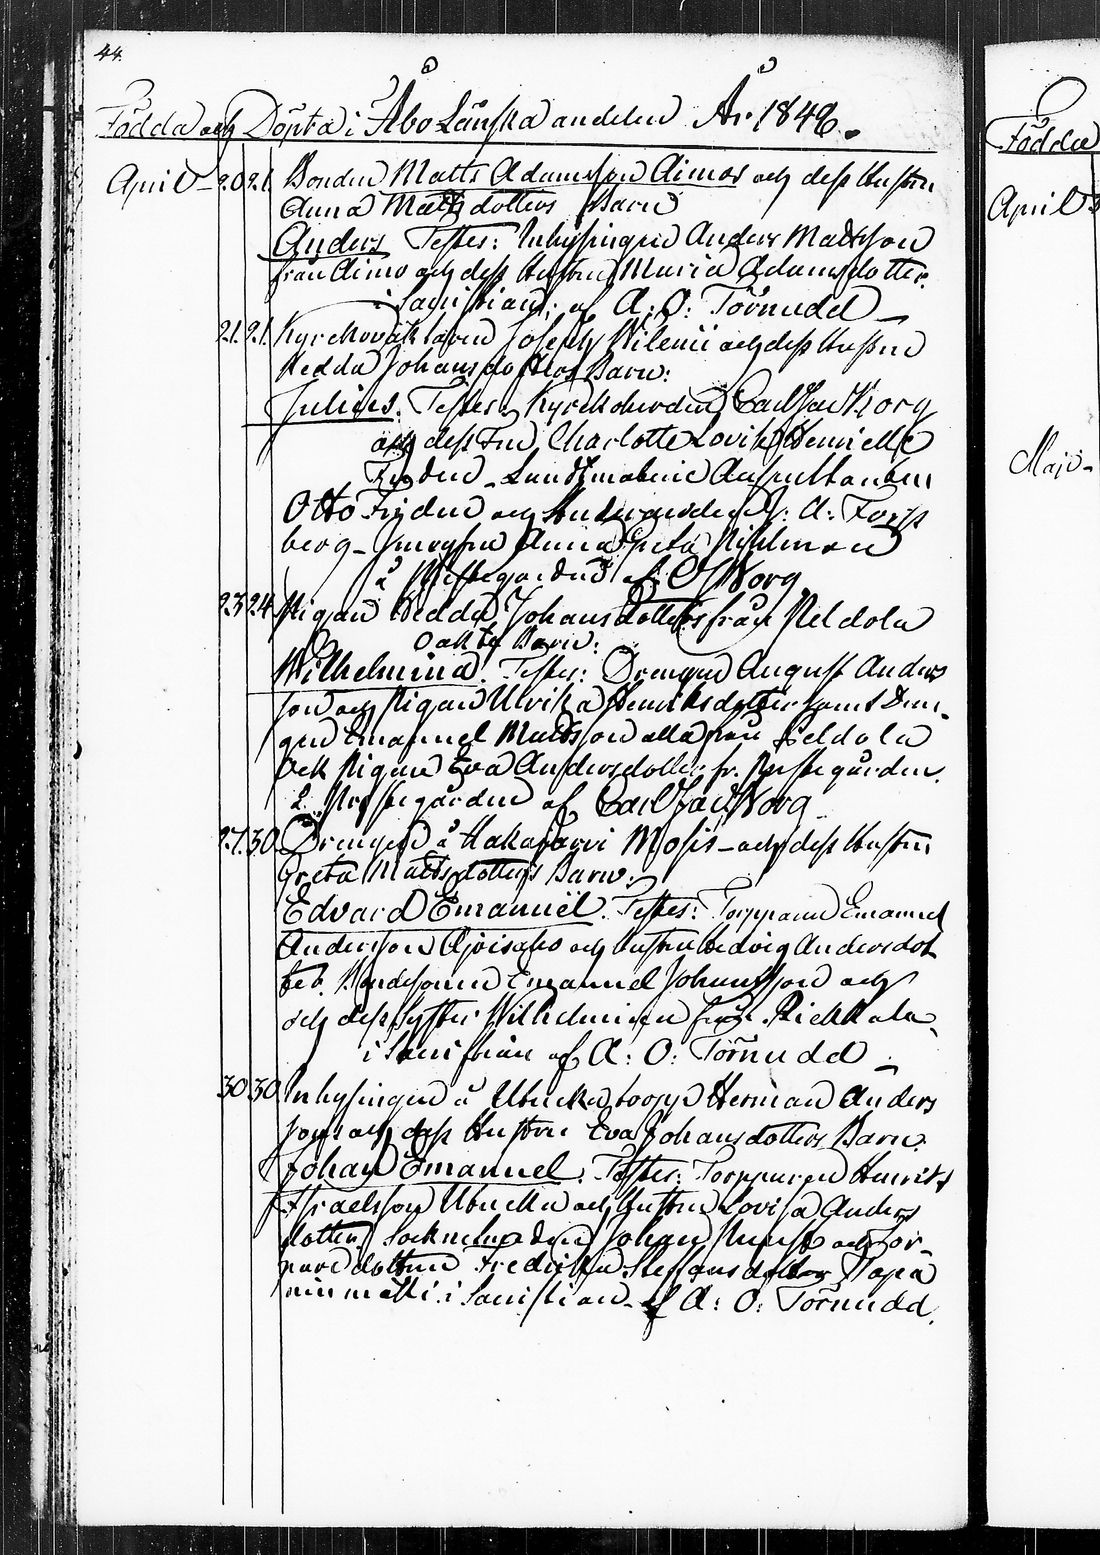 44.
Födda och Döpta i Åbo Länska andelen År 1846.
April 20 21 Bonden Matts Adamsson Aimos och dess Hustru
Anna Mattsdotters Barn
Anders Testes: Inhysingen Anders Mattsson
från Aimo och dess Hustru Maria Adamsdotter.
i Sacristian; af A: O: Törnudd
21. 21. Kyrkovaktaren Joseph Wilenii och dess Hustru
Hedda Johansdotters Barn:
Julius. Testes: Kyrckoherden Carl Jac Borg
och dess Fru Charlotte Lovisa Henriette
Frydén Landtmäterie Auscultanten
Otto Frydén och Studeranden A: Forss
berg Jungfru Anna Greta
å Prestegården af C J Borg
23 24 Pigan Hedda Johansdotters från Peldola
Oäkta Barn:
Wilhelmina. Testes: Drengen August Anders
son och Pigan Ulrika Henriksdotter samt Dren-
gen Emanuel Mattsson alla från Peldola
och Pigan Eva Andersdotter fr. Prestegården.
å Prestegården af Carl Jac Borg
27. 30. Drengen å Hakajärvi Mosis och dess Hustru
Greta Mattsdotters Barn:
Edvard Emanuël. Testes: Torpparen Emanuel
Andersson och Hustru Hedvig Andersdot
ter. Bondesonen Emanuel Johansson och
och dess Syster Wilhelmina från
i Sacristian af A: O: Törnudd
30 30 Inhysingen å torp Herman Anders
sons och dess Hustru Eva Johansdotters Barn.
Johan Emanuel. Testes: Torpparen Henrik
Israelsson och Hustru Lovisa Anders
dotter, Johan och Tor-
paredottren Fredrika Staffansdotter
i Sacristian af A: O: Törnudd.
Födda
April
Maji